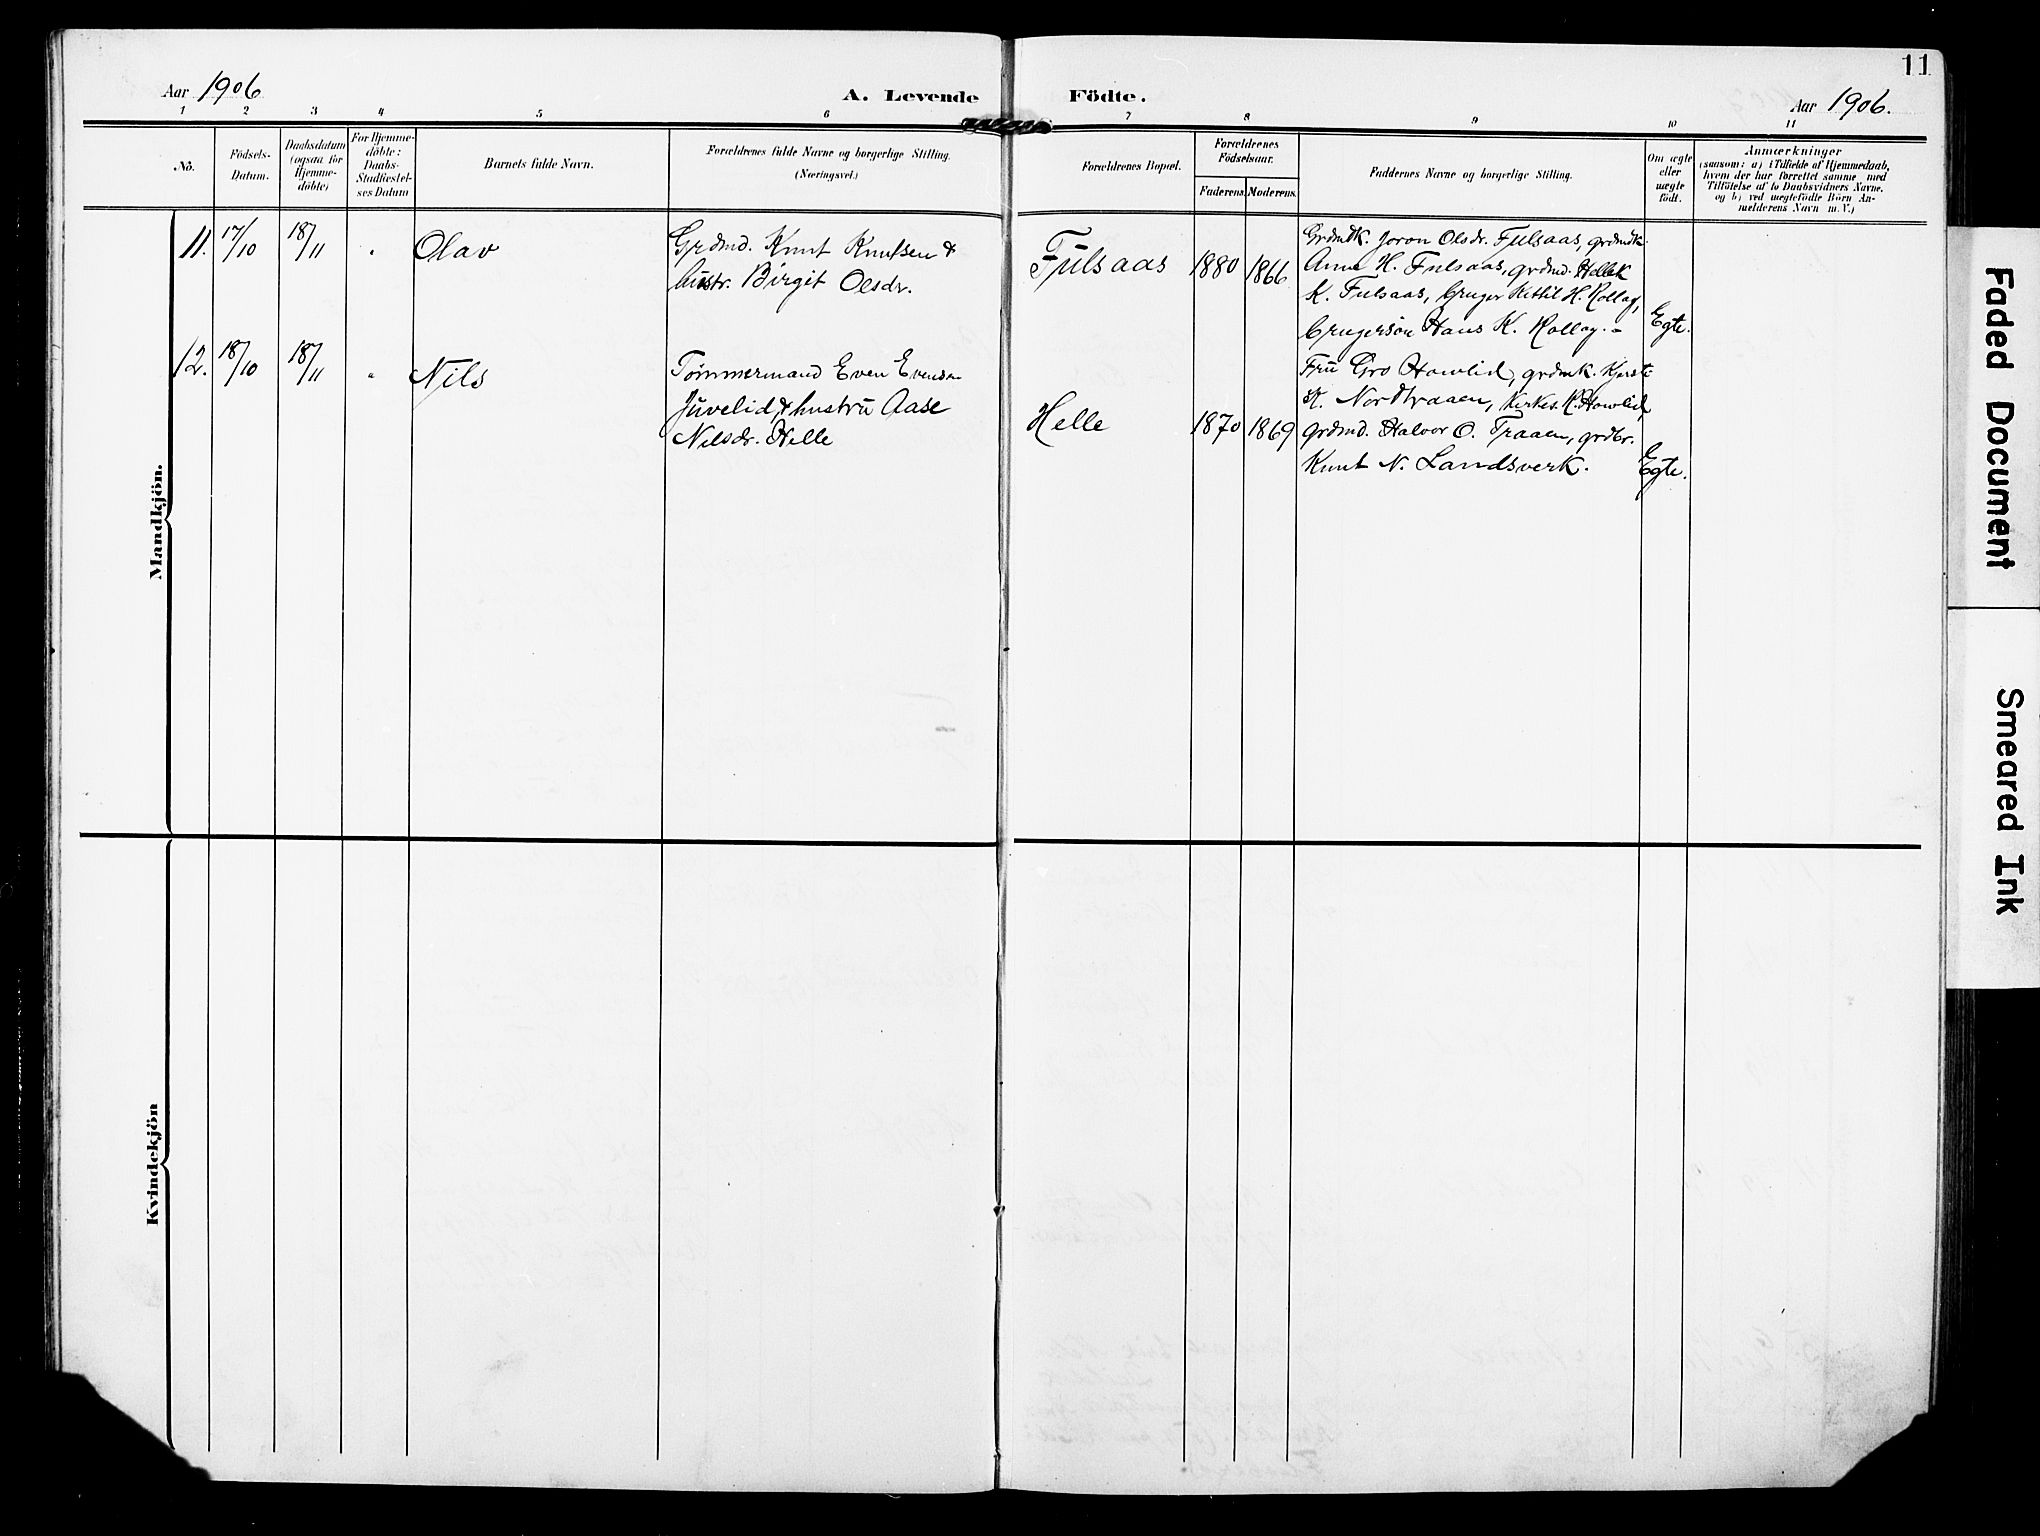 11
Aar 1906
A. Levende Födte.
Aar 1906.
1 2 3 4 5 6 7 8 9 10 11
No.
Födsels-
Datum.
Daabsdatum
(ogsaa for
Hjemme-
döbte)
For Hjemme-
döbte:
Daabs-
Stadfæstel-
ses Datum
Barnets fulde Navn.
Forældrenes fulde Navne og borgerlige Stilling.
(Næringsvei.)
Forældrenes Bopæl.
Forældrenes
Födselsaar.
Faderens. Moderens.
Faddernes Navne og borgerlige Stilling.
Om ægte
eller
uægte
födt.
Anmærkninger
(saasom: a) i Tilfælde af Hjemmedaab,
hvem der har forrettet samme med
Tilföielse af to Daabsvidners Navne.
og b) ved uægtefödte Börn An-
melderens Navn m. V.)
Mandkjön.
11. 17/10 18/11 " Olav
Grdmd. Knut Knutsen &
hustr. Birgit Olsdr.
Fulsaas 1880 1866
Grdmdk. Joron Olsdr. Fulsaas, grdmdk.
Anne H. Fulsaas, grdmd. Hellek
K. Fulsaas, Gruger Kittil H. Rollag,
Grugersøn Hans K. Rollag. -
Egte.
12. 18/10 18/11 " Nils
Tømmermand Even Evensen
Juvelid, & hustru Aase
Nilsdr. Helle
Helle 1870 1869
Fru Gro Howlid, grdmk. Kjersti
K. Nordtraaen, Kirkes. K. Howlid,
grdmd. Halvor O. Traaen, grdbr.
Knut N. Landsverk.
Egte.
Kvindekjön
Faded Document
Smeared Ink